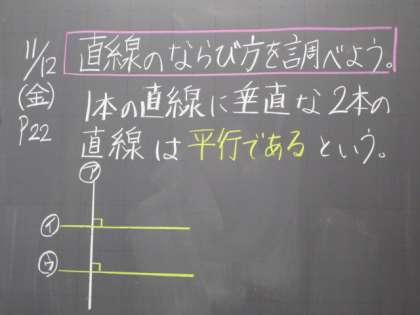 11/12
(金)
P22
直線のならび方を調べよう。
1本の直線に垂直な2本の
直線は平行であるという。
㋐
㋑
㋒